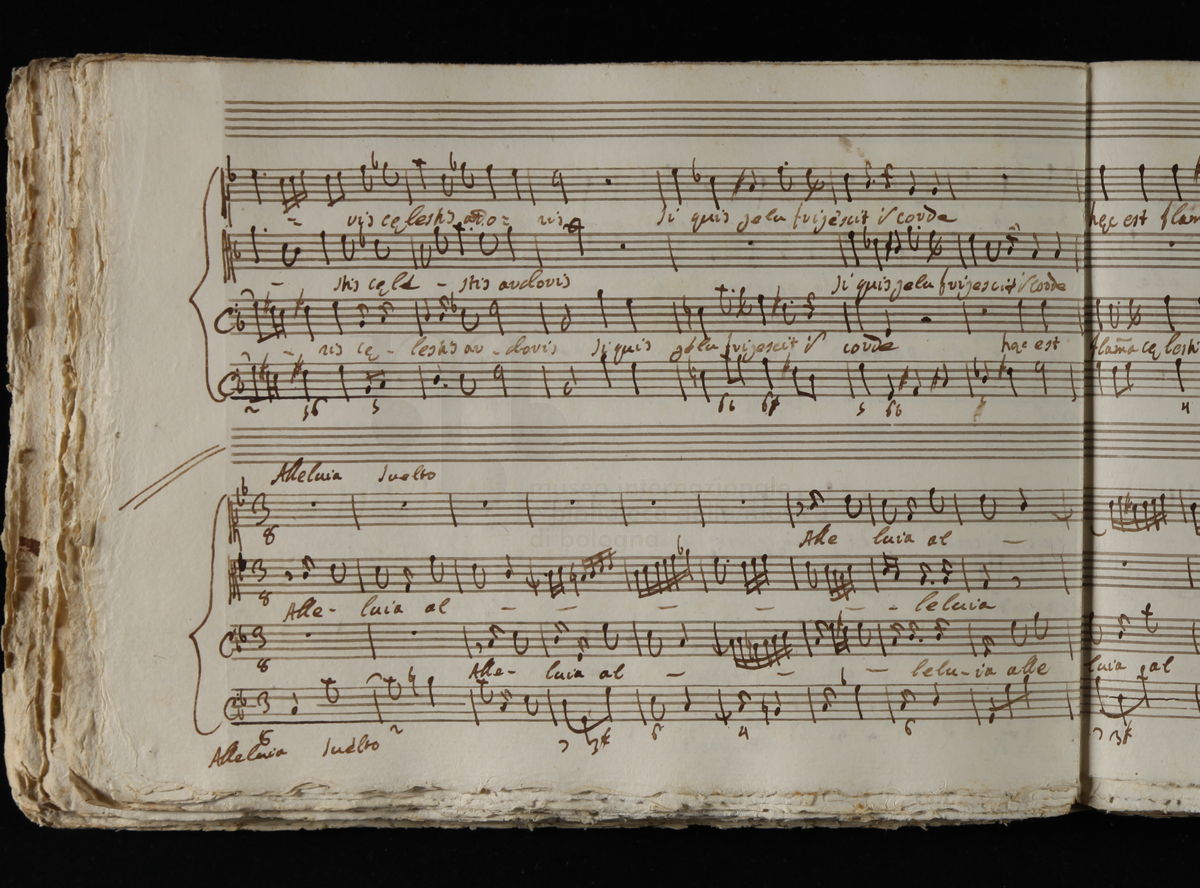 ris cęlestis ardo= ris Si quis gelu frigescit i corde hęc est flam
stis cęle - stis ardoris Si quis gelu frigescit i corde
ris cę - lestis ar - doris Si quis gelu frigescit i corde hęc est flama cęlesti
2 56 5 66 6# 5 6b 4
Alleluia Suelto
3 8
Alle luia al —
3 8
Alle- luia al — — — — — - leluia
3 8
Alle- luia al — — — lelu-ia alle luia al
3 8
2 3# 6 4 6 3#
Alleluia Suelto
museo internazionale
di bologna